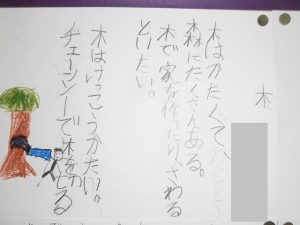 木
木はかたくて
森にたくさんある。
木で家を作ったりさわる
といたい。
木はけっこうかたい。
チェーンソーで木を切る